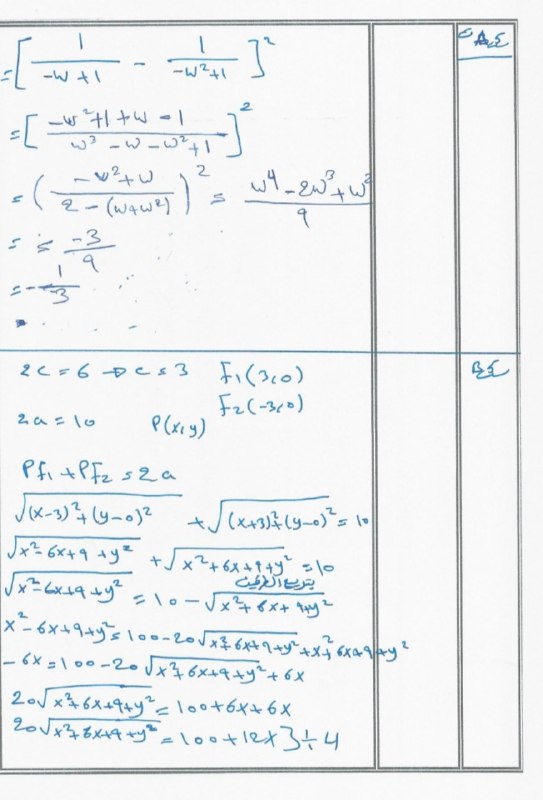 ج A
= [ 1/(-w+1) - 1/(-w²+1) ]²
= [ (-w²+1+w-1)/(w³-w-w²+1) ]²
= ( (-w²+w)/(2-(w+w²)) )² = (w⁴-2w³+w²)/9
= = -3/9
= -1/3
ج B
2c = 6 → c = 3 F₁(3,0)
F₂(-3,0)
2a = 10 P(x,y)
Pf₁ + PF₂ = 2a
√((x-3)²+(y-0)²) + √((x+3)²+(y-0)²) = 10
√(x²-6x+9+y²) + √(x²+6x+9+y²) = 10
بتربيع الطرفين
√(x²-6x+9+y²) = 10 - √(x²+6x+9+y²)
x²-6x+9+y² = 100-20√(x²+6x+9+y²)+x²+6x+9+y²
-6x = 100-20√(x²+6x+9+y²)+6x
20√(x²+6x+9+y²) = 100+6x+6x
20√(x²+6x+9+y²) = 100+12x } ÷ 4